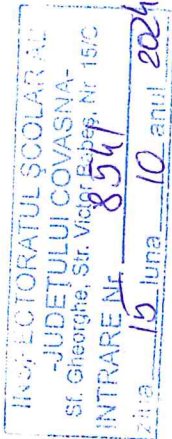 INSPECTORATUL ȘCOLAR AL
-JUDEȚULUI COVASNA-
Sf. Gheorghe, Str. Victor Babeș, Nr. 15/C
INTRARE Nr. 8541
ziua 15 luna 10 anul 2024